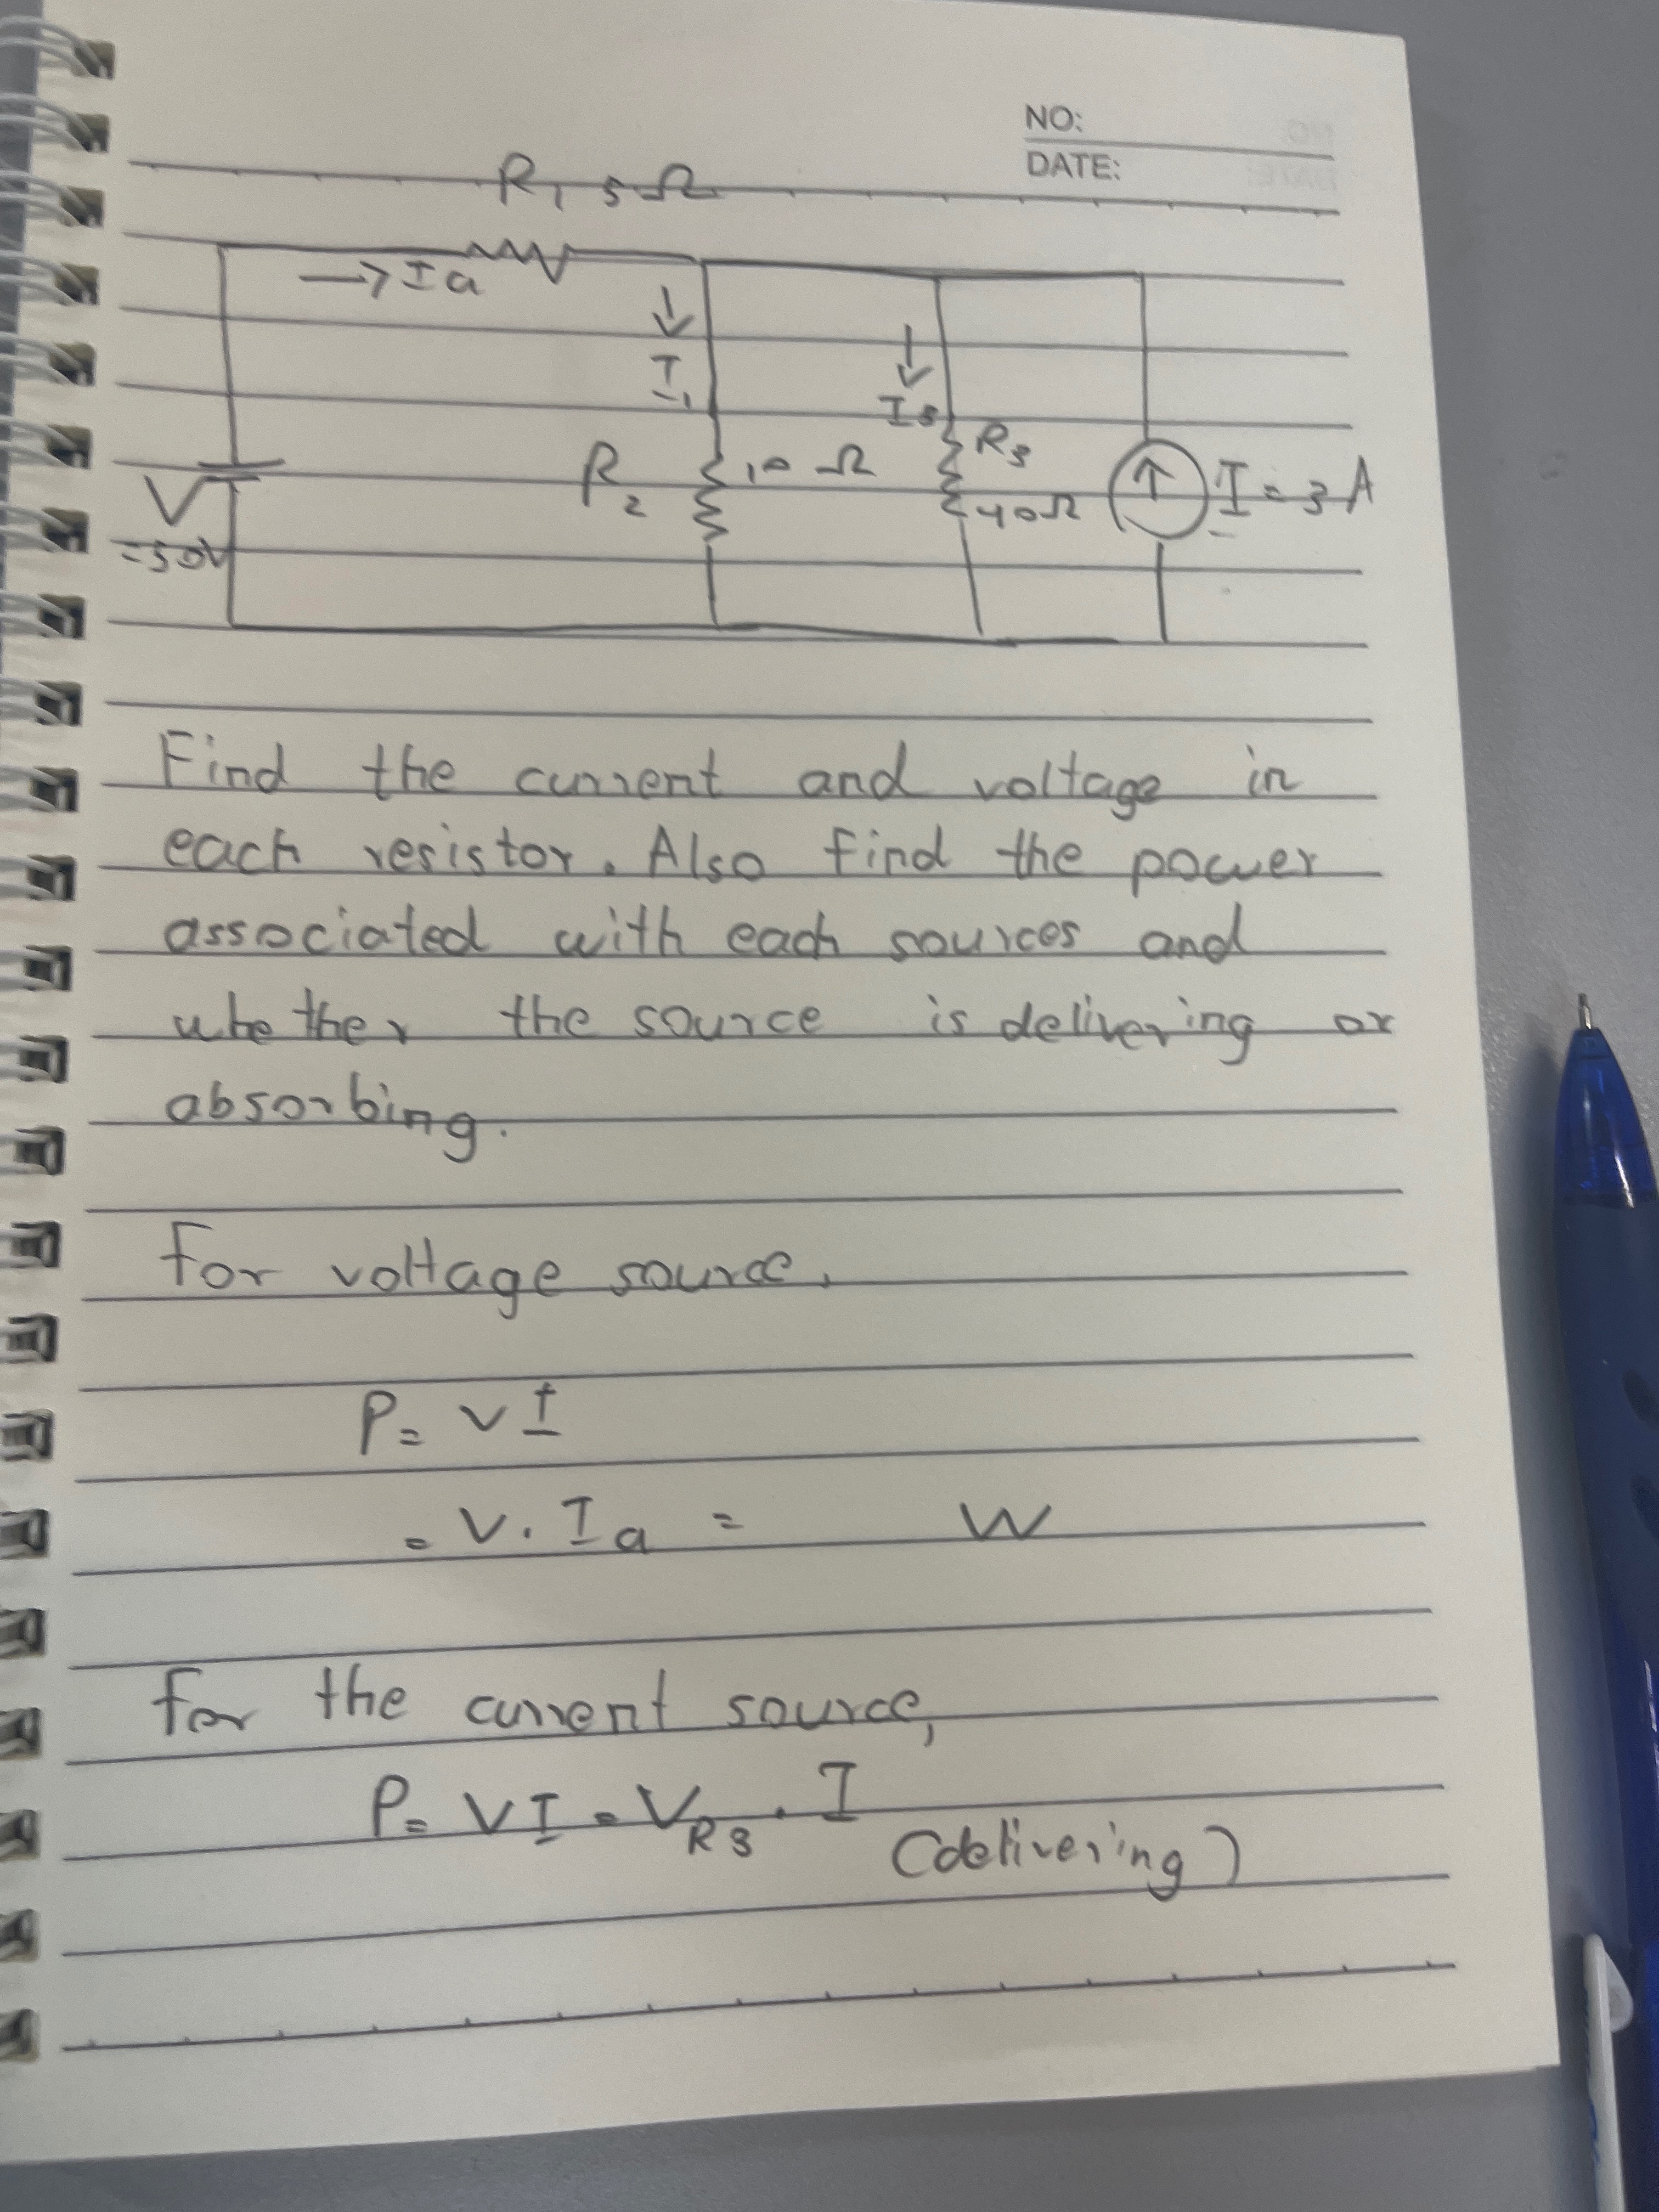 NO:
DATE:
R1 5Ω
→ Ia
I1
I3
R3
R2
10 Ω
40Ω
I = 3 A
V
=50V
Find the current and voltage in
each resistor. Also find the power
associated with each sources and
whether the source is delivering or
absorbing.
For voltage source,
P= VI
= V. Ia = W
For the current source,
P= VI = VR3 . I
(delivering)